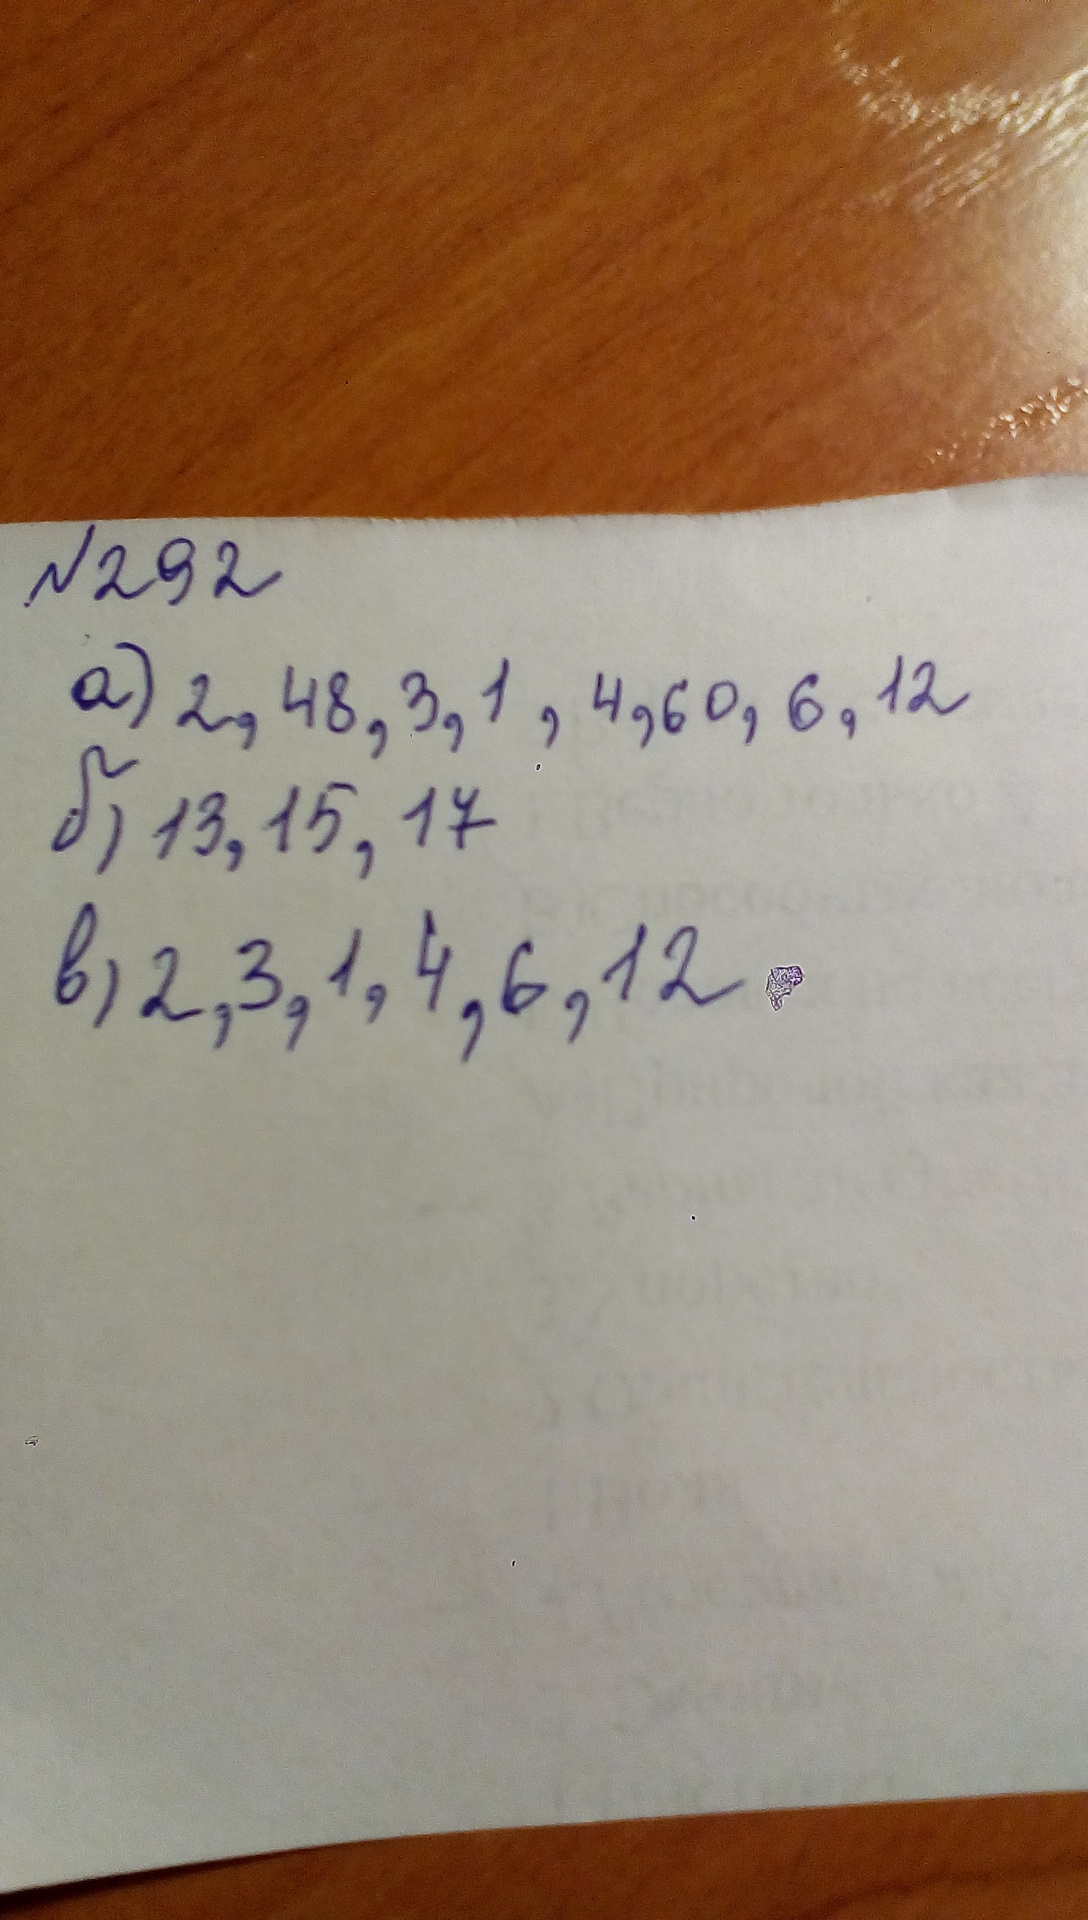 №292
а) 2, 48, 3, 1, 4, 60, 6, 12
б) 13, 15, 17
в) 2, 3, 1, 4, 6, 12